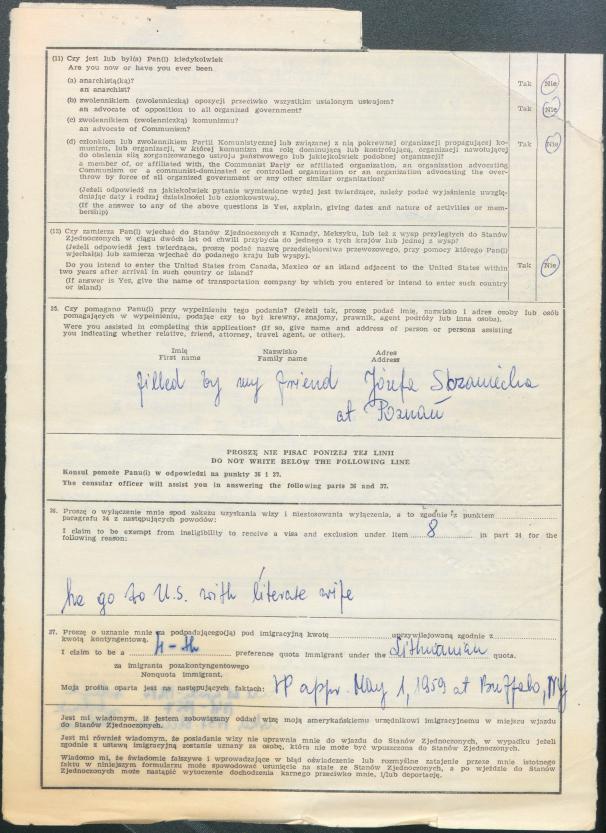 (11) Czy jest lub był(a) Pan(i) kiedykolwiek
Are you now or have you ever been
(a) anarchistą(ką)?
an anarchist? Tak Nie
(b) zwolennikiem (zwolenniczką) opozycji przeciwko wszystkim ustalonym ustrojom?
an advocate of opposition to all organized government? Tak Nie
(c) zwolennikiem (zwolenniczką) komunizmu?
an advocate of Communism?
(d) członkiem lub zwolennikiem Partii Komunistycznej lub związanej z nią pokrewnej organizacji propagującej ko- Tak Nie
munizm, lub organizacji, w której komunizm ma rolę dominującą lub kontrolującą, organizacji nawołującej
do obalenia siłą zorganizowanego ustroju państwowego lub jakiejkolwiek podobnej organizacji?
a member of, or affiliated with, the Communist Party or affiliated organization, an organization advocating
Communism or a communist-dominated or controlled organization or an organization advocating the over-
throw by force of all organized government or any other similar organization?
(Jeżeli odpowiedź na jakiekolwiek pytanie wymienione wyżej jest twierdzące, należy podać wyjaśnienie uwzglę-
dniając daty i rodzaj działalności lub członkowstwa).
(If the answer to any of the above questions is Yes, explain, giving dates and nature of activities or mem-
bership)
(12) Czy zamierza Pan(i) wjechać do Stanów Zjednoczonych z Kanady, Meksyku, lub też z wysp przyległych do Stanów
Zjednoczonych w ciągu dwóch lat od chwili przybycia do jednego z tych krajów lub jednej z wysp?
(Jeżeli odpowiedź jest twierdząca, proszę podać nazwę przedsiębiorstwa przewozowego, przy pomocy którego Pan(i)
wjechał(a) lub zamierza wjechać do podanego kraju lub wyspy).
Do you intend to enter the United States from Canada, Mexico or an island adjacent to the United States within Tak Nie
two years after arrival in such country or island?
(If answer is Yes, give the name of transportation company by which you entered or intend to enter such country
or island)
35. Czy pomagano Panu(i) przy wypełnieniu tego podania? (Jeżeli tak, proszę podać imię, nazwisko i adres osoby lub osób
pomagających w wypełnieniu, podając czy to był krewny, znajomy, prawnik, agent podróży lub inna osoba).
Were you assisted in completing this application? (If so, give name and address of person or persons assisting
you indicating whether relative, friend, attorney, travel agent, or other).
Imię Nazwisko Adres
First name Family name Address
filled by my friend Józefa
at Poznań
PROSZĘ NIE PISAĆ PONIŻEJ TEJ LINII
DO NOT WRITE BELOW THE FOLLOWING LINE
Konsul pomoże Panu(i) w odpowiedzi na punkty 36 i 37.
The consular officer will assist you in answering the following parts 36 and 37.
36. Proszę o wyłączenie mnie spod zakazu uzyskania wizy i niestosowania wyłączenia, a to zgodnie z punktem
paragrafu 34 z następujących powodów:
I claim to be exempt from ineligibility to receive a visa and exclusion under item 8 in part 34 for the
following reason:
to go to U.S. with literate wife
37. Proszę o uznanie mnie za podpadającego(ą) pod imigracyjną kwotę uprzywilejowaną zgodnie z
kwotą kontyngentową.
I claim to be a 4-th preference quota immigrant under the Lithuanian quota.
za imigranta pozakontyngentowego
Nonquota immigrant.
Moja prośba oparta jest na następujących faktach: VP appr. May 1, 1959 at Buffalo, NY
Jest mi wiadomym, iż jestem zobowiązany oddać wizę moją amerykańskiemu urzędnikowi imigracyjnemu w miejscu wjazdu
do Stanów Zjednoczonych.
Jest mi również wiadomym, że posiadanie wizy nie uprawnia mnie do wjazdu do Stanów Zjednoczonych, w wypadku jeżeli
zgodnie z ustawą imigracyjną zostanie uznany za osobę, która nie może być wpuszczona do Stanów Zjednoczonych.
Wiadomo mi, że świadomie fałszywe i wprowadzające w błąd oświadczenie lub rozmyślne zatajenie przeze mnie istotnego
faktu w niniejszym formularzu może spowodować usunięcie na stałe ze Stanów Zjednoczonych, a po wjeździe do Stanów
Zjednoczonych może nastąpić wytoczenie dochodzenia karnego przeciwko mnie, i/lub deportację.